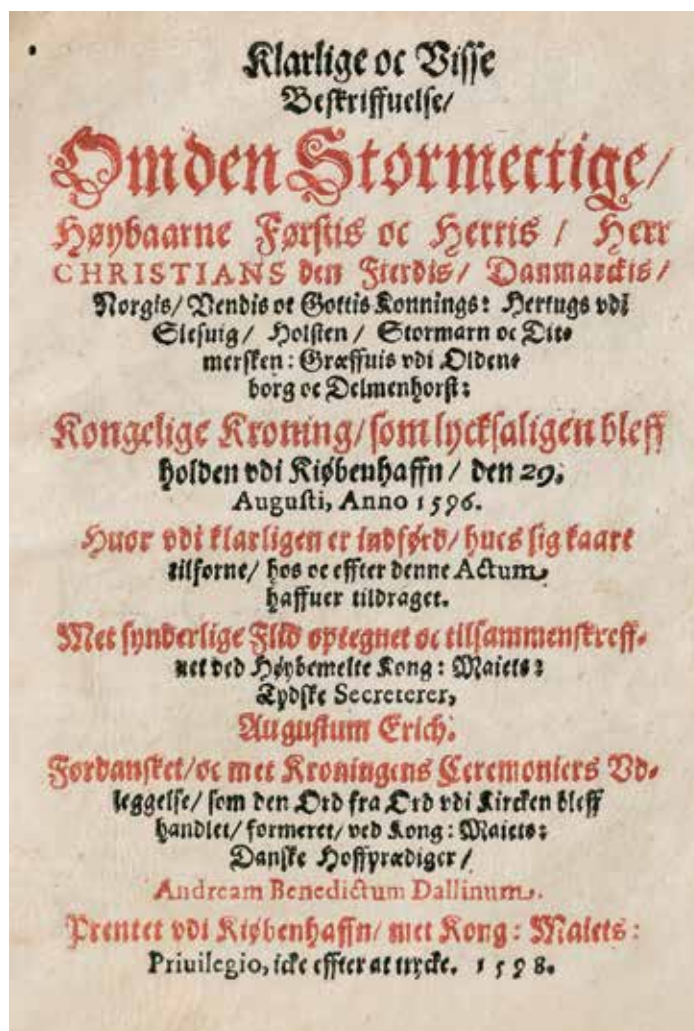 Klarlige oc Visse
Beskriffuelse/
Om den Stormectige/
Høybaarne Førstis oc Herris / Herr
CHRISTIANS den Fierdis/ Danmarckis/
Norgis/ Vendis oc Gottis Konnings: Hertugs vdi
Slesuig/ Holsten / Stormarn oc Dit⸗
mersken: Græffuis vdi Olden⸗
borg oc Delmenhorst:
Kongelige Kroning/ som lycksaligen bleff
holden vdi Kiøbenhaffn / den 29.
Augusti, Anno 1596.
Huor vdi klarligen er indførd/ hues sig kaart
tilforne/ hos oc effter denne Actum
haffuer tildraget.
Met synderlige Flid optegnet oc tilsammenskreff⸗
uet ved Høybemelte Kong: Maiets:
Tydske Secreterer,
Augustum Erich.
Fordansket/ oc met Kroningens Ceremoniers Vd⸗
leggelse/ som den Ord fra Ord vdi Kircken bleff
handlet/ formeret/ ved Kong: Maiets:
Danske Hoffprædiger /
Andream Benedictum Dallinum.
Prentet vdi Kiøbenhaffn/ met Kong: Maiets:
Priuilegio, icke effter at trycke. 1598.